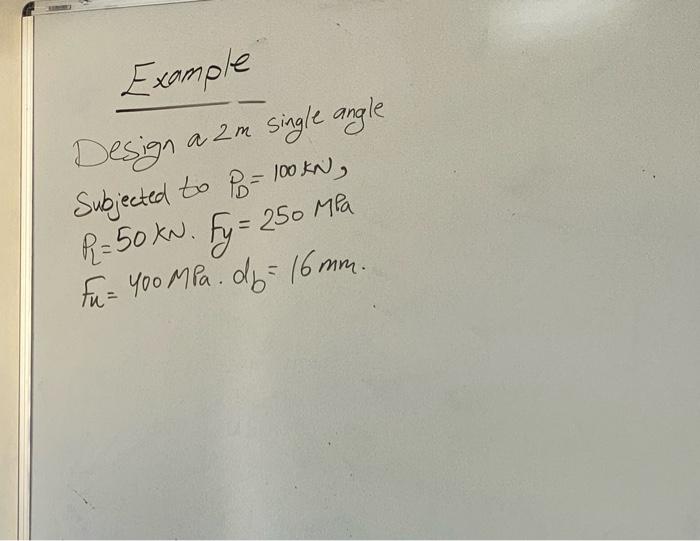 Example
Design a 2m single angle
Subjected to PD= 100 kN,
PL=50 kN. Fy= 250 MPa
Fu= 400 MPa. db= 16 mm.